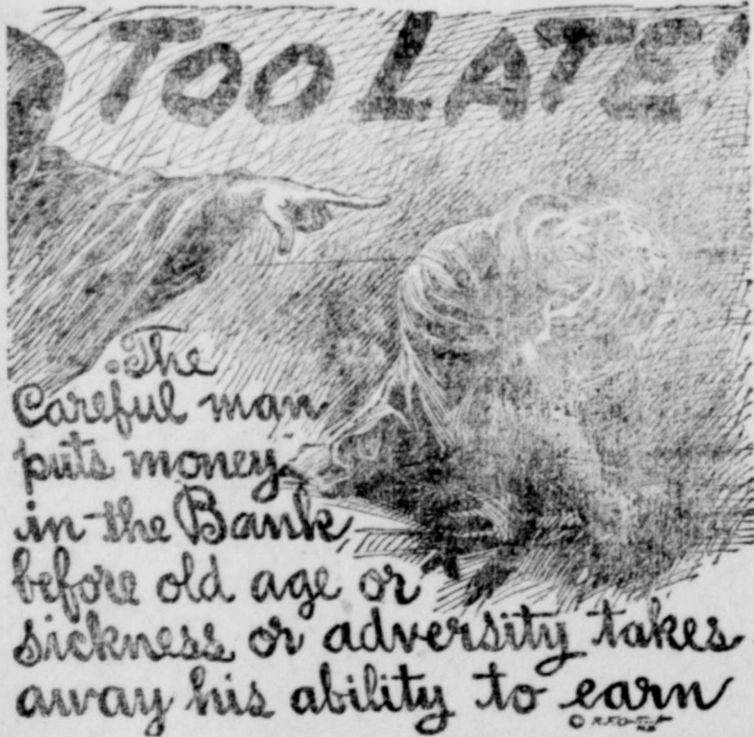 TOO LATE!
The
Careful man
puts money
in the Bank
before old age or
sickness or adversity takes
away his ability to earn
©